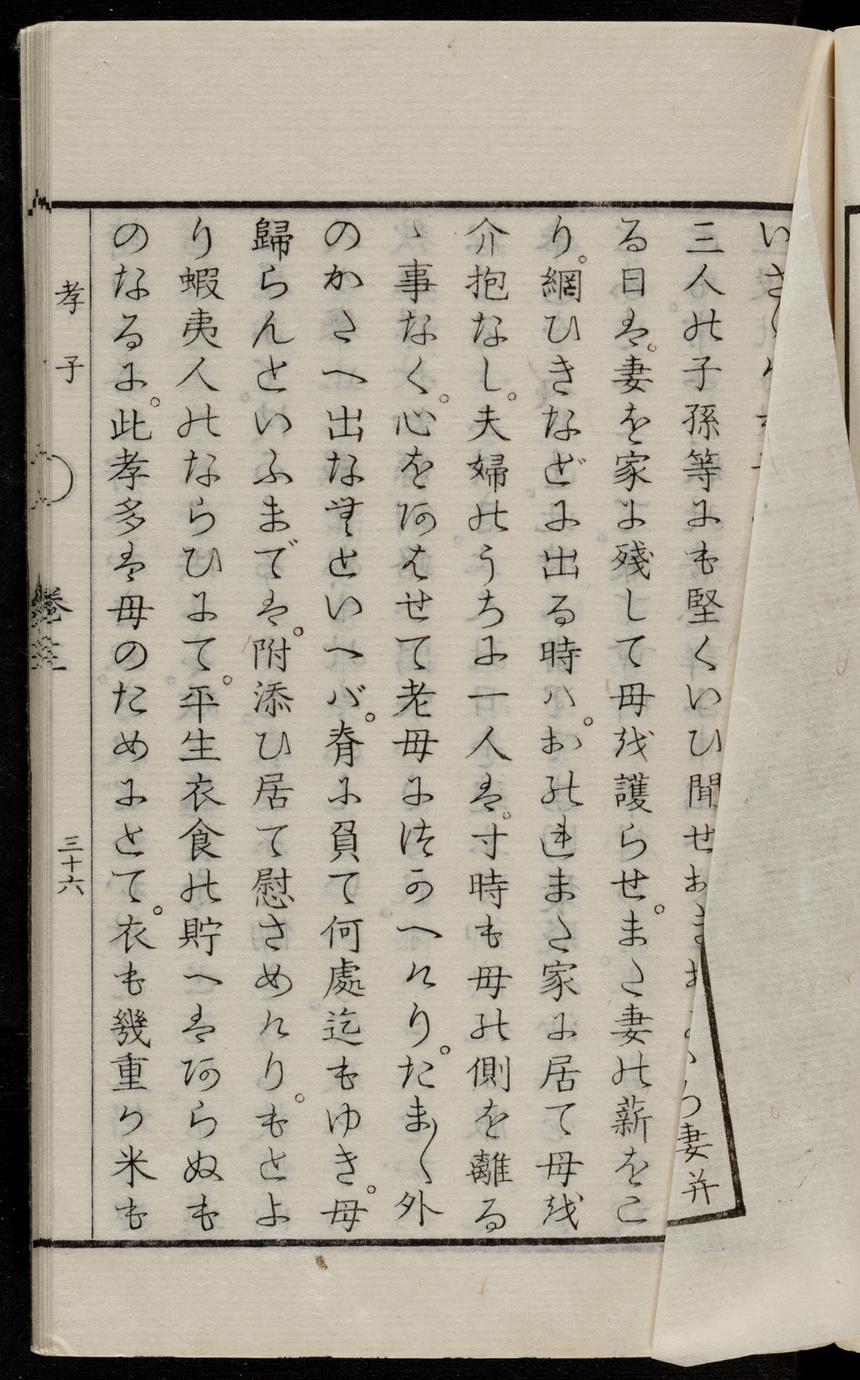 いさ
三人の子孫等にも堅くいひ聞せお
妻并
る日は。妻を家に殘して母を護らせ。また妻の薪をこ
り。網ひきなどに出る時ハ。おのれまた家に居て母を
介抱なし。夫婦のうちに一人は。寸時も母の側を離る
ゝ事なく。心をあはせて老母につかへけり。たま〱外
のかたへ出なむといへバ。脊に負て何處迄もゆき。母
歸らんといふまでは。附添ひ居て慰さめけり。もとよ
り蝦夷人のならひにて。平生衣食の貯へはあらぬも
のなるに。此孝多は母のためにとて。衣も幾重か米も
孝子 巻三 三十六